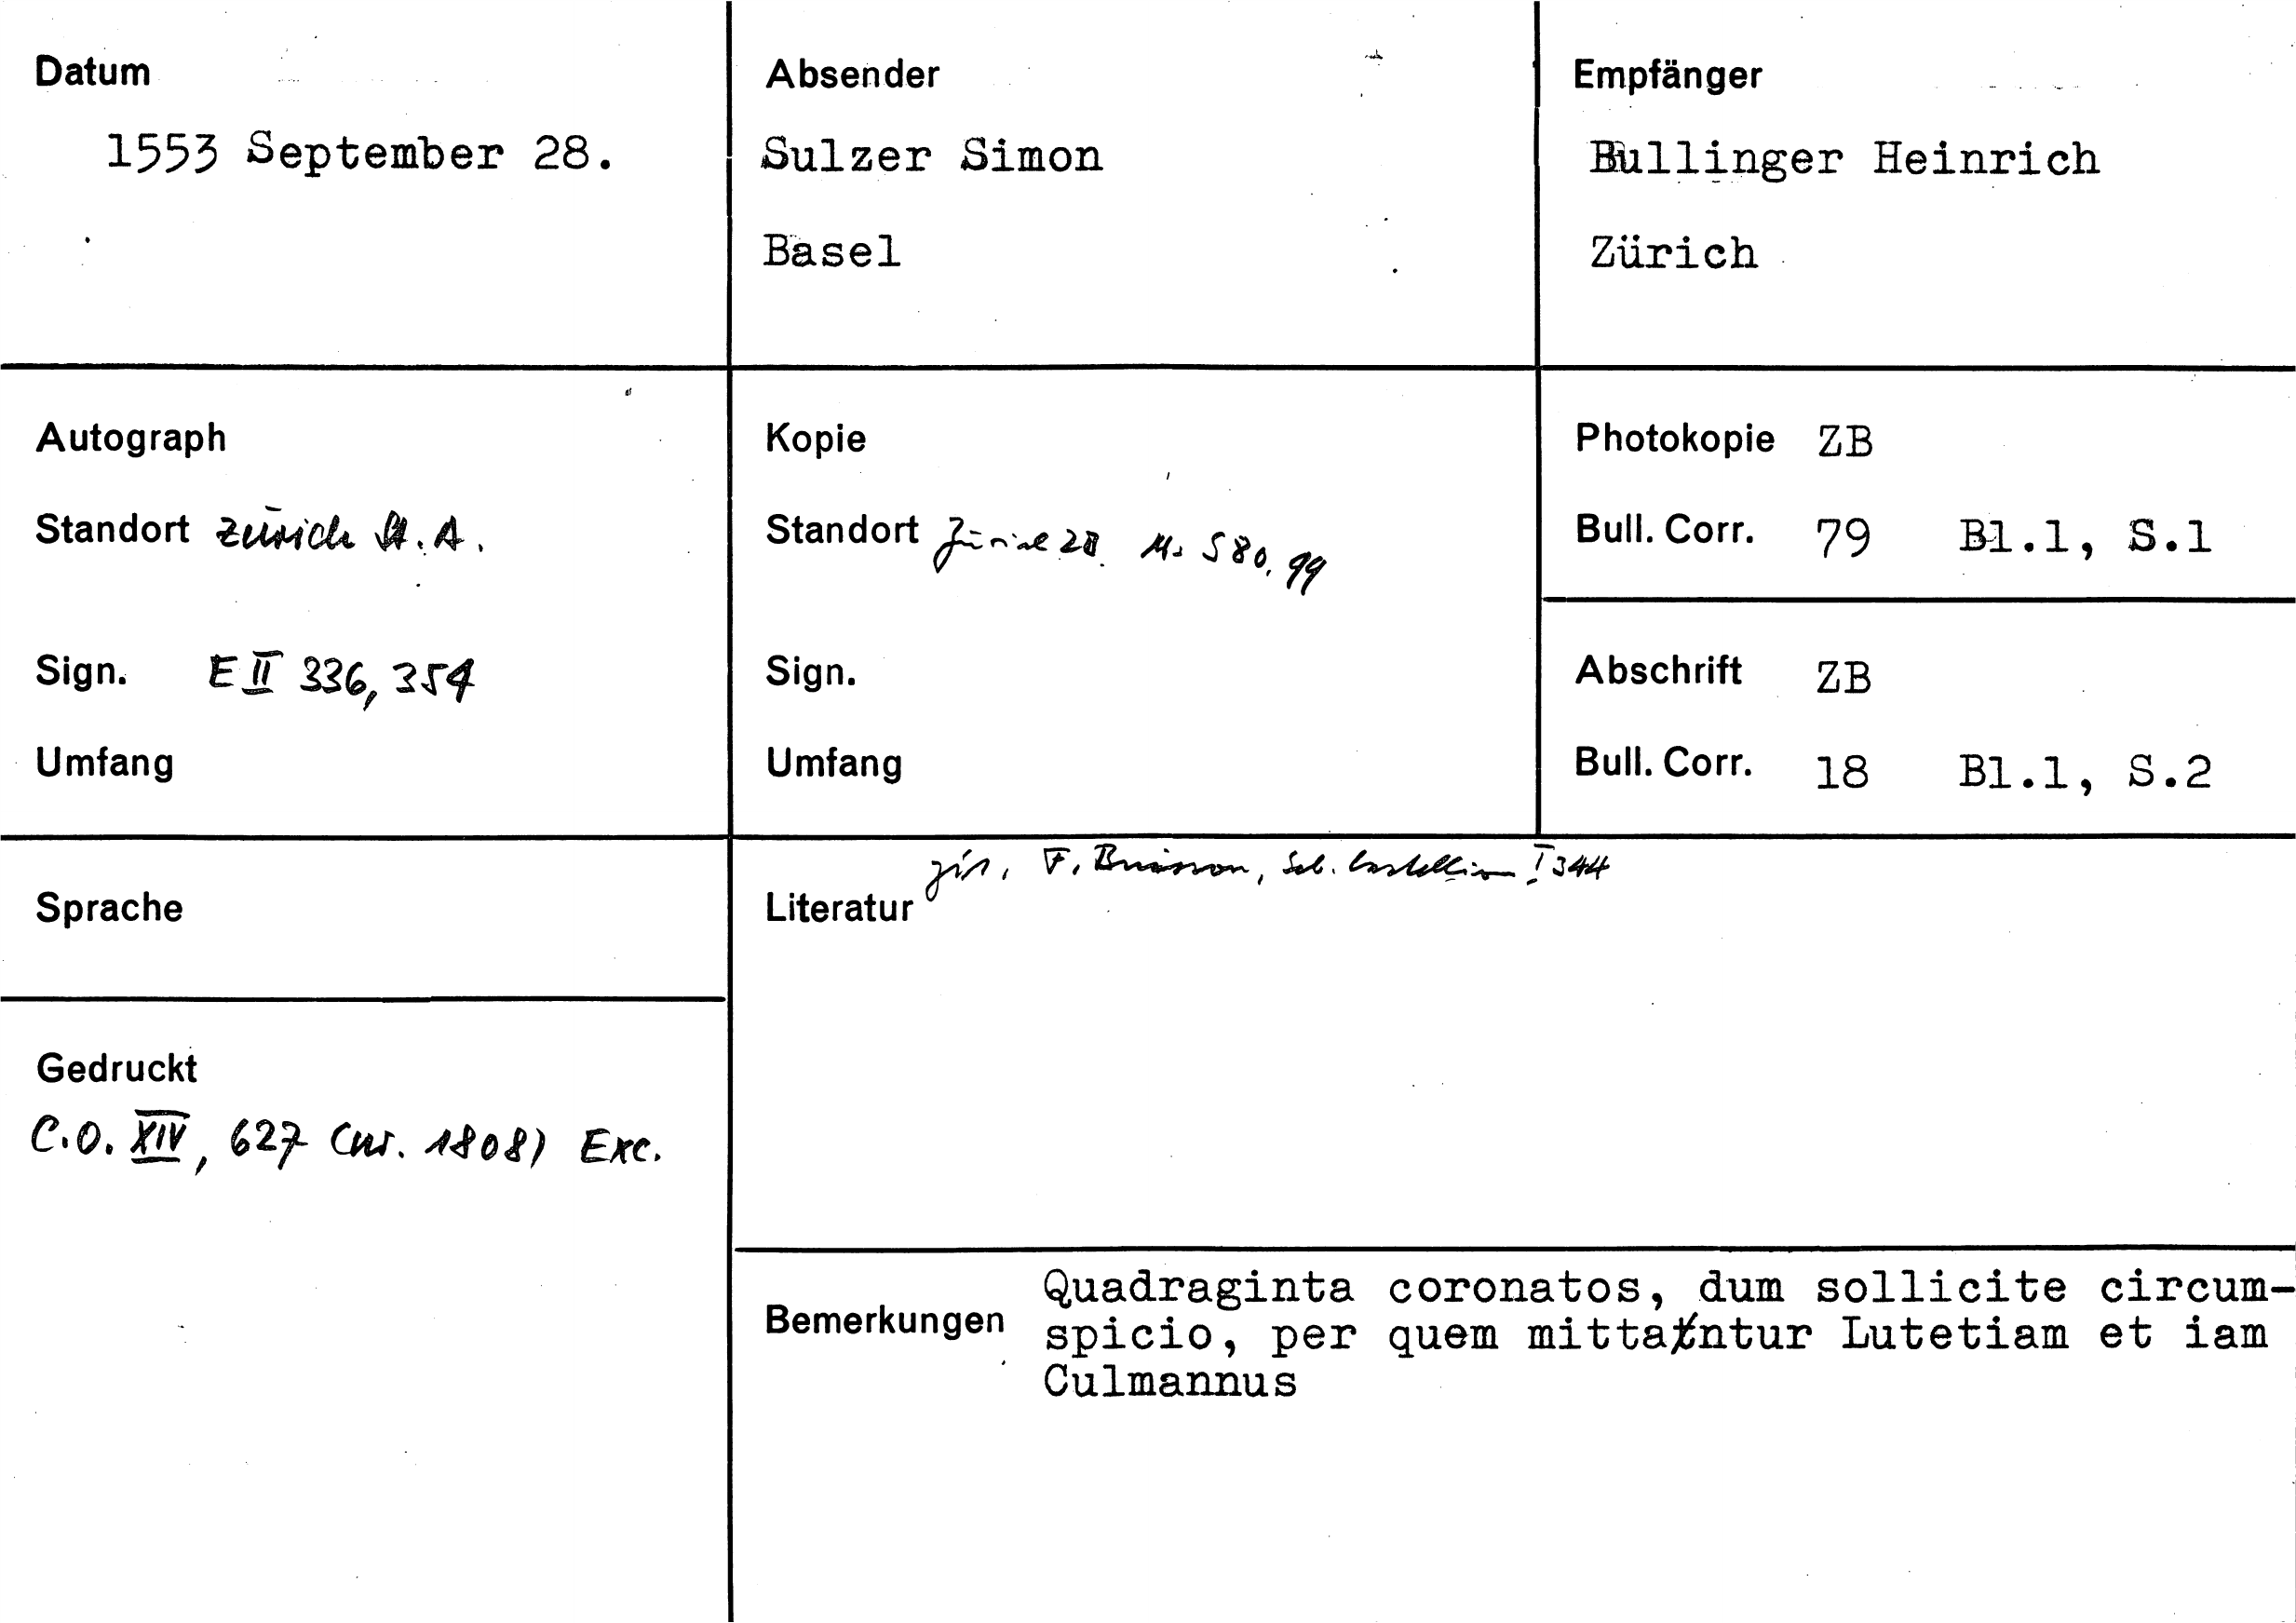 Datum
1553 September 28.
Absender
Sulzer Simon
Basel
Empfänger
Bullinger Heinrich
Zürich
Autograph
Standort Zürich St. A.
Sign. E II 336, 354
Umfang
Kopie
Standort Zürich ZB Ms S 80, 99
Sign.
Umfang
Photokopie ZB
Bull. Corr. 79 Bl.1, S.1
Abschrift ZB
Bull. Corr. 18 Bl.1, S.2
Sprache
Gedruckt
C.O. XIV, 627 (nr. 1808) Exc.
Literatur zit. F. Buisson, Seb. Castellion I 344
Bemerkungen Quadraginta coronatos, dum sollicite circum-
spicio, per quem mittantur Lutetiam et iam
Culmannus